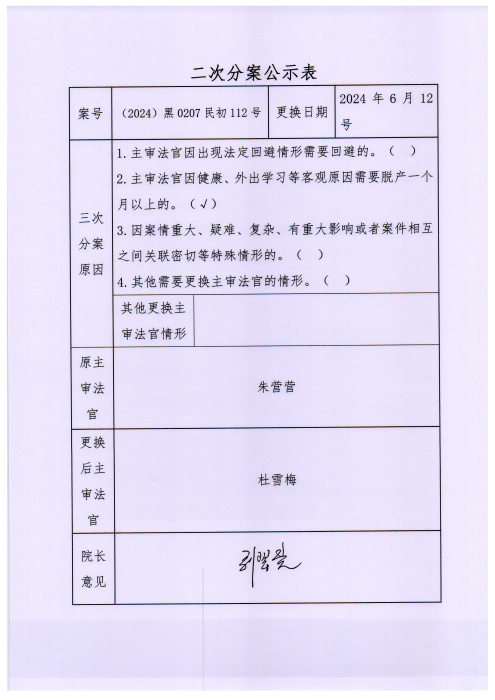 二次分案公示表
案号
（2024）黑0207民初112号
更换日期
2024 年 6 月 12
号
三次
分案
原因
1.主审法官因出现法定回避情形需要回避的。（ ）
2.主审法官因健康、外出学习等客观原因需要脱产一个
月以上的。（√）
3.因案情重大、疑难、复杂、有重大影响或者案件相互
之间关联密切等特殊情形的。（ ）
4.其他需要更换主审法官的情形。（ ）
其他更换主
审法官情形
原主
审法
官
朱营营
更换
后主
审法
官
杜雪梅
院长
意见